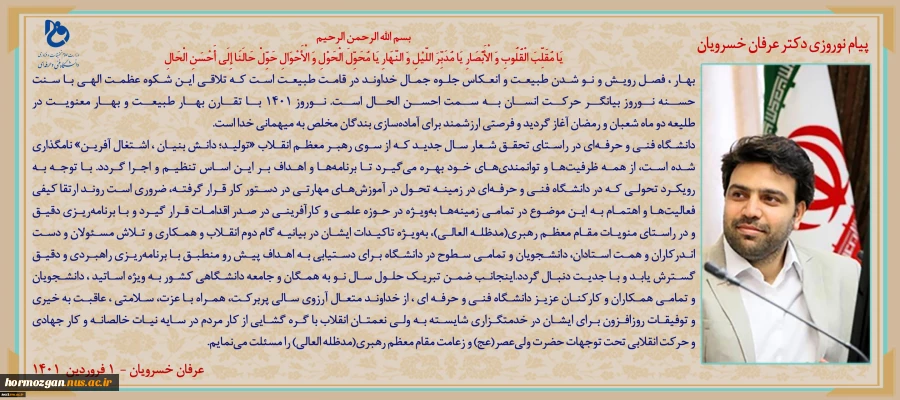 پیام نوروزی دکتر عرفان خسرویان
بسم الله الرحمن الرحیم
یَا مُقَلِّبَ الْقُلُوبِ وَ الْأَبْصَارِ یَا مُدَبِّرَ اللَّیْلِ وَ النَّهَارِ یَا مُحَوِّلَ الْحَوْلِ وَ الْأَحْوَالِ حَوِّلْ حَالَنَا إِلَى أَحْسَنِ الْحَالِ
بهار، فصل رویش و نو شدن طبیعت و انعکاس جلوه جمال خداوند در قامت طبیعت است که تلاقی این شکوه عظمت الهی با سنت
حسنه نوروز بیانگر حرکت انسان به سمت احسن الحال است. نوروز ۱۴۰۱ با تقارن بهار طبیعت و بهار معنویت در
طلیعه دو ماه شعبان و رمضان آغاز گردید و فرصتی ارزشمند برای آماده‌سازی بندگان مخلص به میهمانی خدا است.
دانشگاه فنی و حرفه‌ای در راستای تحقق شعار سال جدید که از سوی رهبر معظم انقلاب «تولید؛ دانش بنیان ، اشتغال آفرین» نامگذاری
شده است، از همه ظرفیت‌ها و توانمندی‌های خود بهره می‌گیرد تا برنامه‌ها و اهداف بر این اساس تنظیم و اجرا گردد. با توجه به
رویکرد تحولی که در دانشگاه فنی و حرفه‌ای در زمینه تحول در آموزش‌های مهارتی در دستور کار قرار گرفته، ضروری است روند ارتقا کیفی
فعالیت‌ها و اهتمام به این موضوع در تمامی زمینه‌ها به‌ویژه در حوزه علمی و کارآفرینی در صدر اقدامات قرار گیرد و با برنامه‌ریزی دقیق
و در راستای منویات مقام معظم رهبری(مدظله العالی)، به‌ویژه تاکیدات ایشان در بیانیه گام دوم انقلاب و همکاری و تلاش مسئولان و دست
اندرکاران و همت استادان، دانشجویان و تمامی سطوح در دانشگاه برای دستیابی به اهداف پیش رو منطبق با برنامه‌ریزی راهبردی و دقیق
گسترش یابد و با جدیت دنبال گردد.اینجانب ضمن تبریک حلول سال نو به همگان و جامعه دانشگاهی کشور به ویژه اساتید ، دانشجویان
و تمامی همکاران و کارکنان عزیز دانشگاه فنی و حرفه ای ، از خداوند متعال آرزوی سالی پربرکت، همراه با عزت، سلامتی ، عاقبت به خیری
و توفیقات روزافزون برای ایشان در خدمتگزاری شایسته به ولی نعمتان انقلاب با گره گشایی از کار مردم در سایه نیات خالصانه و کار جهادی
و حرکت انقلابی تحت توجهات حضرت ولی‌عصر(عج) و زعامت مقام معظم رهبری(مدظله العالی) را مسئلت می‌نمایم.
عرفان خسرویان - ۱ فروردین ۱۴۰۱
hormozgan.nus.ac.ir